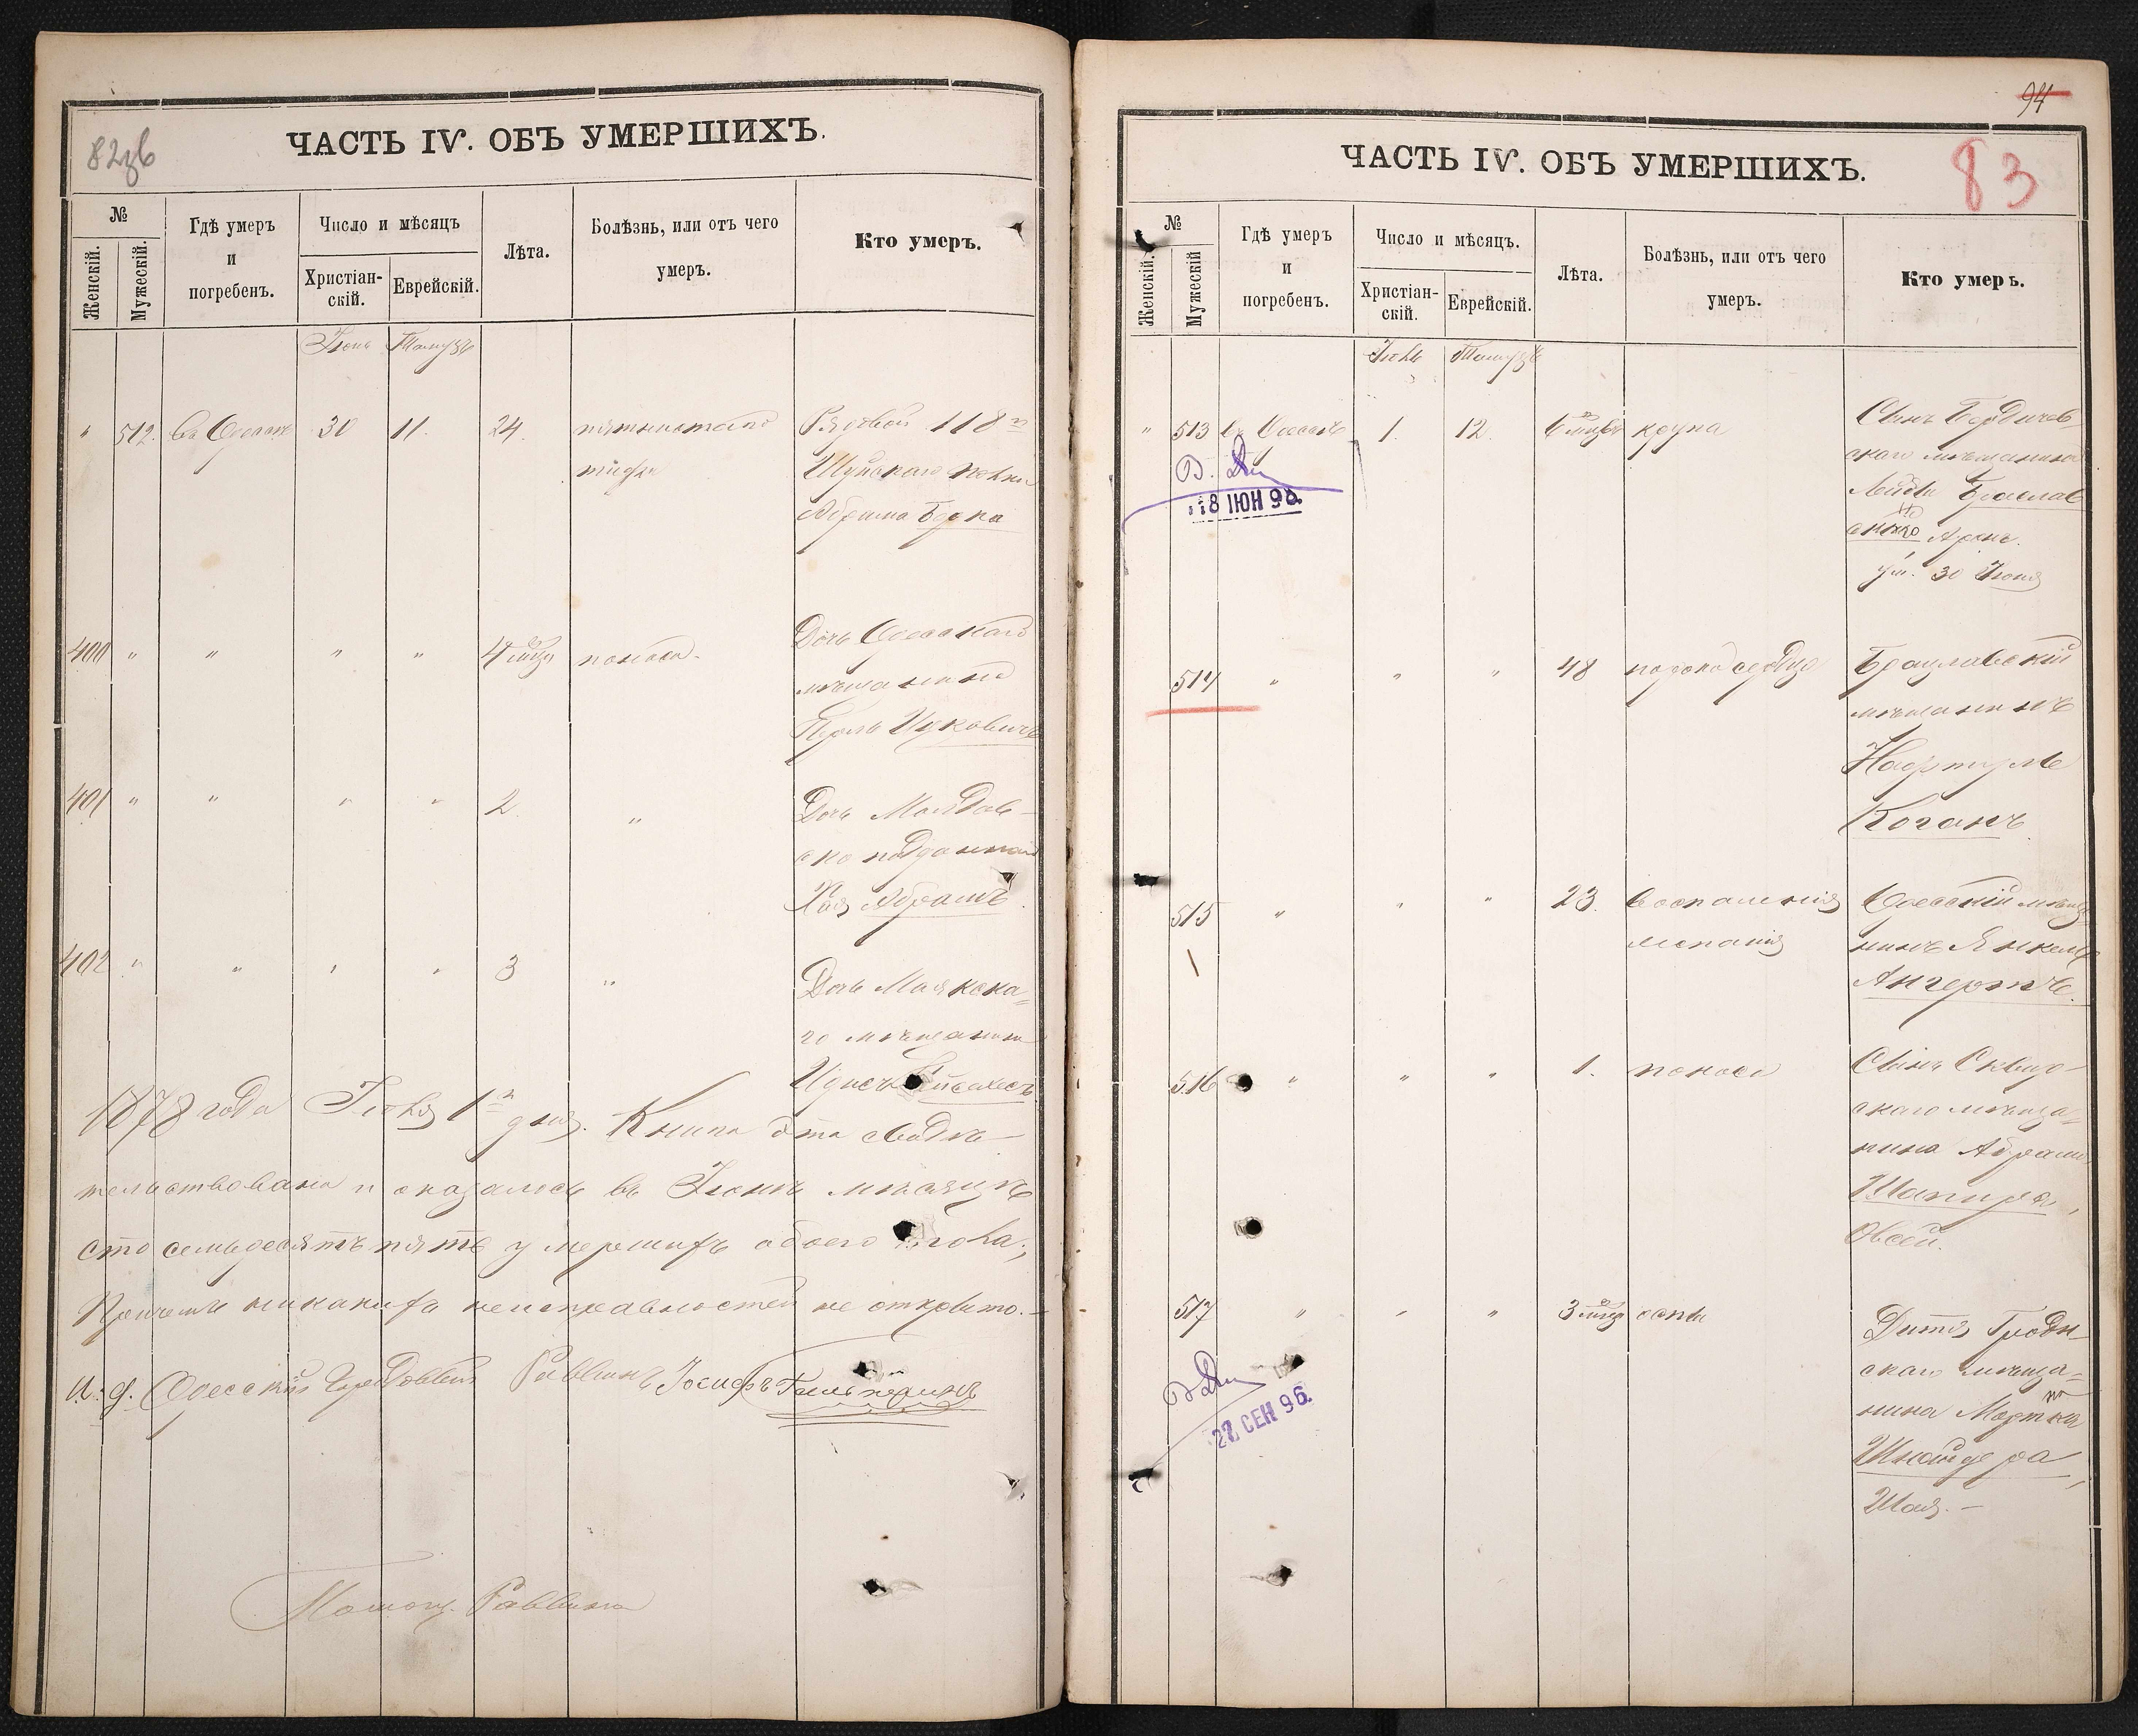 82зв
ЧАСТЬ IV. ОБЪ УМЕРШИХЪ.
№
Женскій.
Мужескій.
Гдѣ умеръ
и
погребенъ.
Число и мѣсяцъ
Христіан-
скій.
Еврейскій.
Лѣта.
Болѣзнь, или отъ чего
умеръ.
Кто умеръ.
Іюнь Тамузъ
" 512. Въ Одессѣ 30 11. 24. пятнистаго Рядовой 118го
тифа Шуйскаго полка
Абрама
400 " " " " 4 мѣс. поноса. Дочь Одесскаго
мѣщанина
Ицковичъ
401 " " " " 2. " Дочь Молдав-
ско подданнаго
Хая Абрамъ.
402 " " " " 3 " Дочь Маякска-
го мѣщанина
1878 года Іюля 1го дня. Книга эта свидѣ-
тельствована и оказалось въ Іюнѣ мѣсяцѣ
сто семьдесятъ пять умершихъ обоего пола,
Причемъ никакихъ неисправностей не открыто.-
И. д. Одесскій Городовой Раввинъ Іосифъ
Помощ. Раввина
94
83
ЧАСТЬ IV. ОБЪ УМЕРШИХЪ.
№
Женскій.
Мужескій
Гдѣ умеръ
и
погребенъ.
Число и мѣсяцъ.
Христіан-
скій.
Еврейскій.
Лѣта.
Болѣзнь, или отъ чего
умеръ.
Кто умеръ.
Іюль Тамузъ
" 513 въ Одессѣ 1. 12. 6 мѣс. крупа Сынъ Бердичев-
скаго мѣщанина
Лейбы Браслав
скаго Аронъ.
ум. 30 Іюня
18 ІЮН 98.
514 " " " 48 порока сердца Брацлавскій
мѣщанинъ
Нафтулъ
Коганъ.
515 " " " 23. воспаленія Одесскій мѣща-
нинъ Янкель
Ангертъ.
516 " " " 1. поноса Сынъ Сквир-
скаго мѣща-
нина Абрама
Шапира,
Овсей.
517 " " " 3 мѣс. оспы Дитя Гродн-
скаго мѣща-
нина Мортка
Шнайдера,
Шая.-
22 СЕН 96.